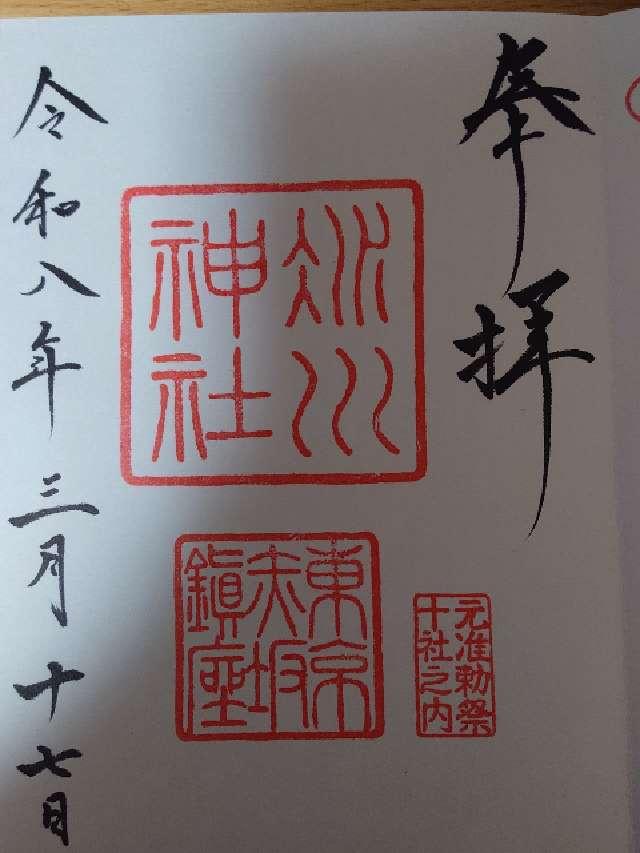 奉拝
氷川
神社
東京
赤坂
鎮座
元准勅祭
十社之内
令和八年三月十七日